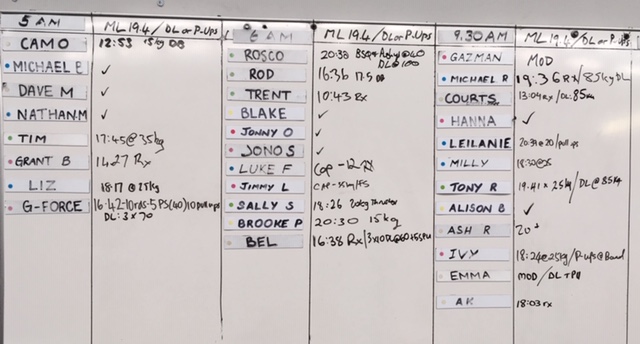 5 AM ML 19.4 / DL or P-Ups
CAMO 12:53 15kg DB
MICHAEL B ✓
DAVE M ✓
NATHAN M ✓
TIM 17:45 @ 35kg
GRANT B 14:27 Rx
LIZ 18:17 @ 25kg
G-FORCE 16:42-10rds-5 PS(40)10 pull ups
DL: 3x70
6 AM ML 19.4 / DL or P-Ups
ROSCO 20:38
DL@100
ROD 16:36 17.5 DB
TRENT 10:43 Rx
BLAKE ✓
JONNY O ✓
JONO S ✓
LUKE F Cap -12 RX
JIMMY L
SALLY S 18:26 20kg Thruster
BROOKE P 20:30 15kg
BEL 16:38 Rx/
9.30 AM ML 19.4 / DL or P-Ups
GAZMAN MOD
MICHAEL R 19:36 Rx/85kg DL
COURTS 13:04 Rx / DL:85
HANNA ✓
LEILANIE 20:39 @ 20/pull ups
MILLY
TONY R 19:41 x 25kg / DL @ 85kg
ALISON B ✓
ASH R
IVY 18:24@25kg/P-ups@Band
EMMA MOD/DL
AK 18:03 rx